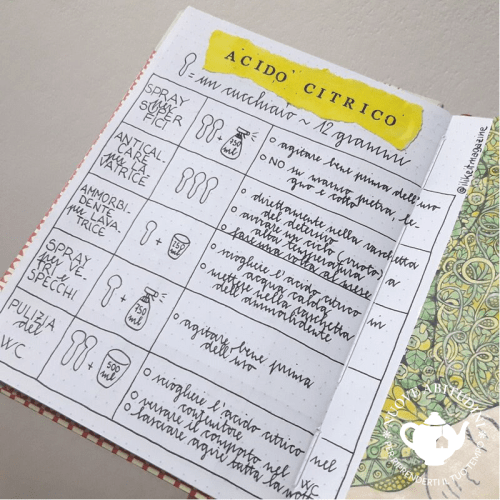 ACIDO CITRICO
= un cucchiaio ~ 12 grammi
SPRAY
per
SUPER
FICI
750
ml
• agitare bene prima dell'uso
• NO su marmo, pietra, le-
gno e cotto
ANTICAL-
CARE
per LA-
VATRICE
• direttamente nella vaschetta
del detersivo
• avviare un ciclo (vuoto) a
alta temperatura
• fare una volta al mese
AMMORBI-
DENTE
per LAVA-
TRICE
+
750
ml
• sciogliere l'acido citrico in
acqua calda
• mettere nella vaschetta
dell'ammorbidente
SPRAY
per VE-
TRI E
SPECCHI
+
750
ml
• agitare bene prima
dell'uso
PULIZIA
del
WC
+
500
ml
• sciogliere l'acido citrico nel
contenitore
• versare il composto nel WC
• lasciare agire tutta la notte
@iliketmagazine